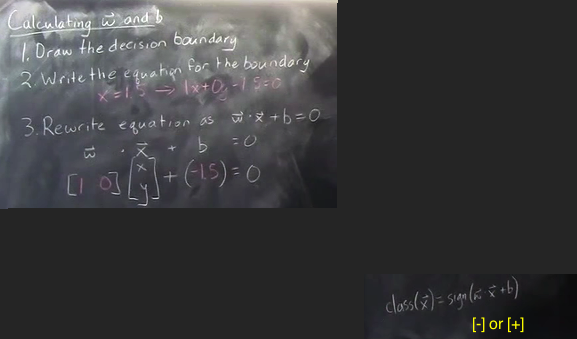 Calculating w⃗ and b
1. Draw the decision boundary
2. Write the equation for the boundary
x = 1.5 → 1x + 0y - 1.5 = 0
3. Rewrite equation as w⃗ · x⃗ + b = 0
w⃗ · x⃗ + b = 0
[1 0] [x y] + (-1.5) = 0
class(x⃗) = sign(w⃗ · x⃗ + b)
[-] or [+]